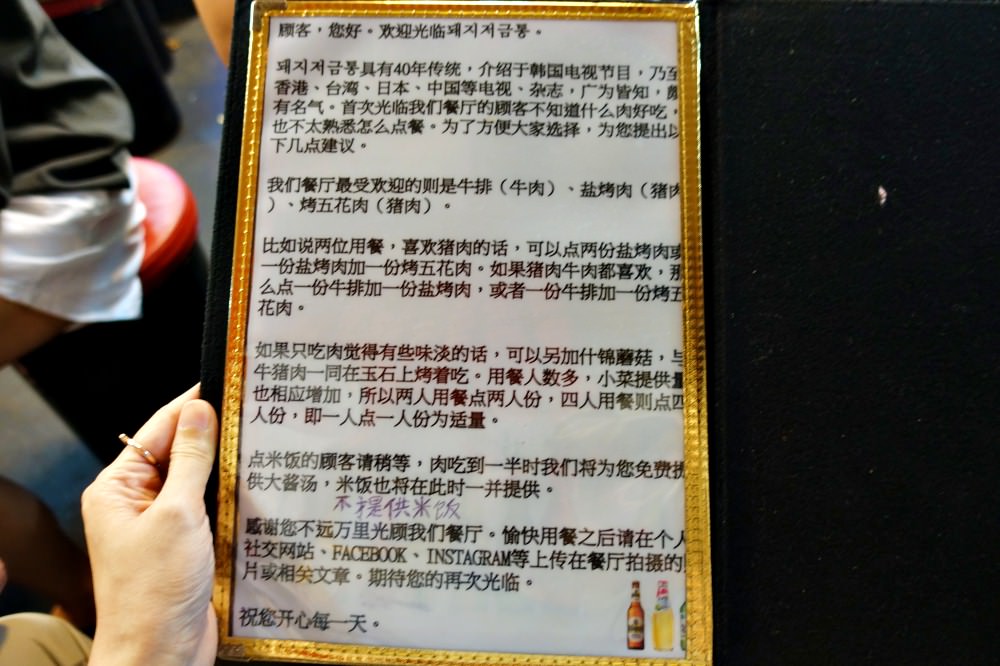 顾客，您好。欢迎光临돼지저금통。
돼지저금통具有40年传统，介绍于韩国电视节目，乃至
香港、台湾、日本、中国等电视、杂志，广为皆知，颇
有名气。首次光临我们餐厅的顾客不知道什么肉好吃，
也不太熟悉怎么点餐。为了方便大家选择，为您提出以
下几点建议。
我们餐厅最受欢迎的则是牛排（牛肉）、盐烤肉（猪肉
）、烤五花肉（猪肉）。
比如说两位用餐，喜欢猪肉的话，可以点两份盐烤肉或
一份盐烤肉加一份烤五花肉。如果猪肉牛肉都喜欢，那
么点一份牛排加一份盐烤肉，或者一份牛排加一份烤五
花肉。
如果只吃肉觉得有些味淡的话，可以另加什锦蘑菇，与
牛猪肉一同在玉石上烤着吃。用餐人数多，小菜提供量
也相应增加，所以两人用餐点两人份，四人用餐则点四
人份，即一人点一人份为适量。
点米饭的顾客请稍等，肉吃到一半时我们将为您免费提
供大酱汤，米饭也将在此时一并提供。
不提供米饭
感谢您不远万里光顾我们餐厅。愉快用餐之后请在个人
社交网站、FACEBOOK、INSTAGRAM等上传在餐厅拍摄的
片或相关文章。期待您的再次光临。
祝您开心每一天。